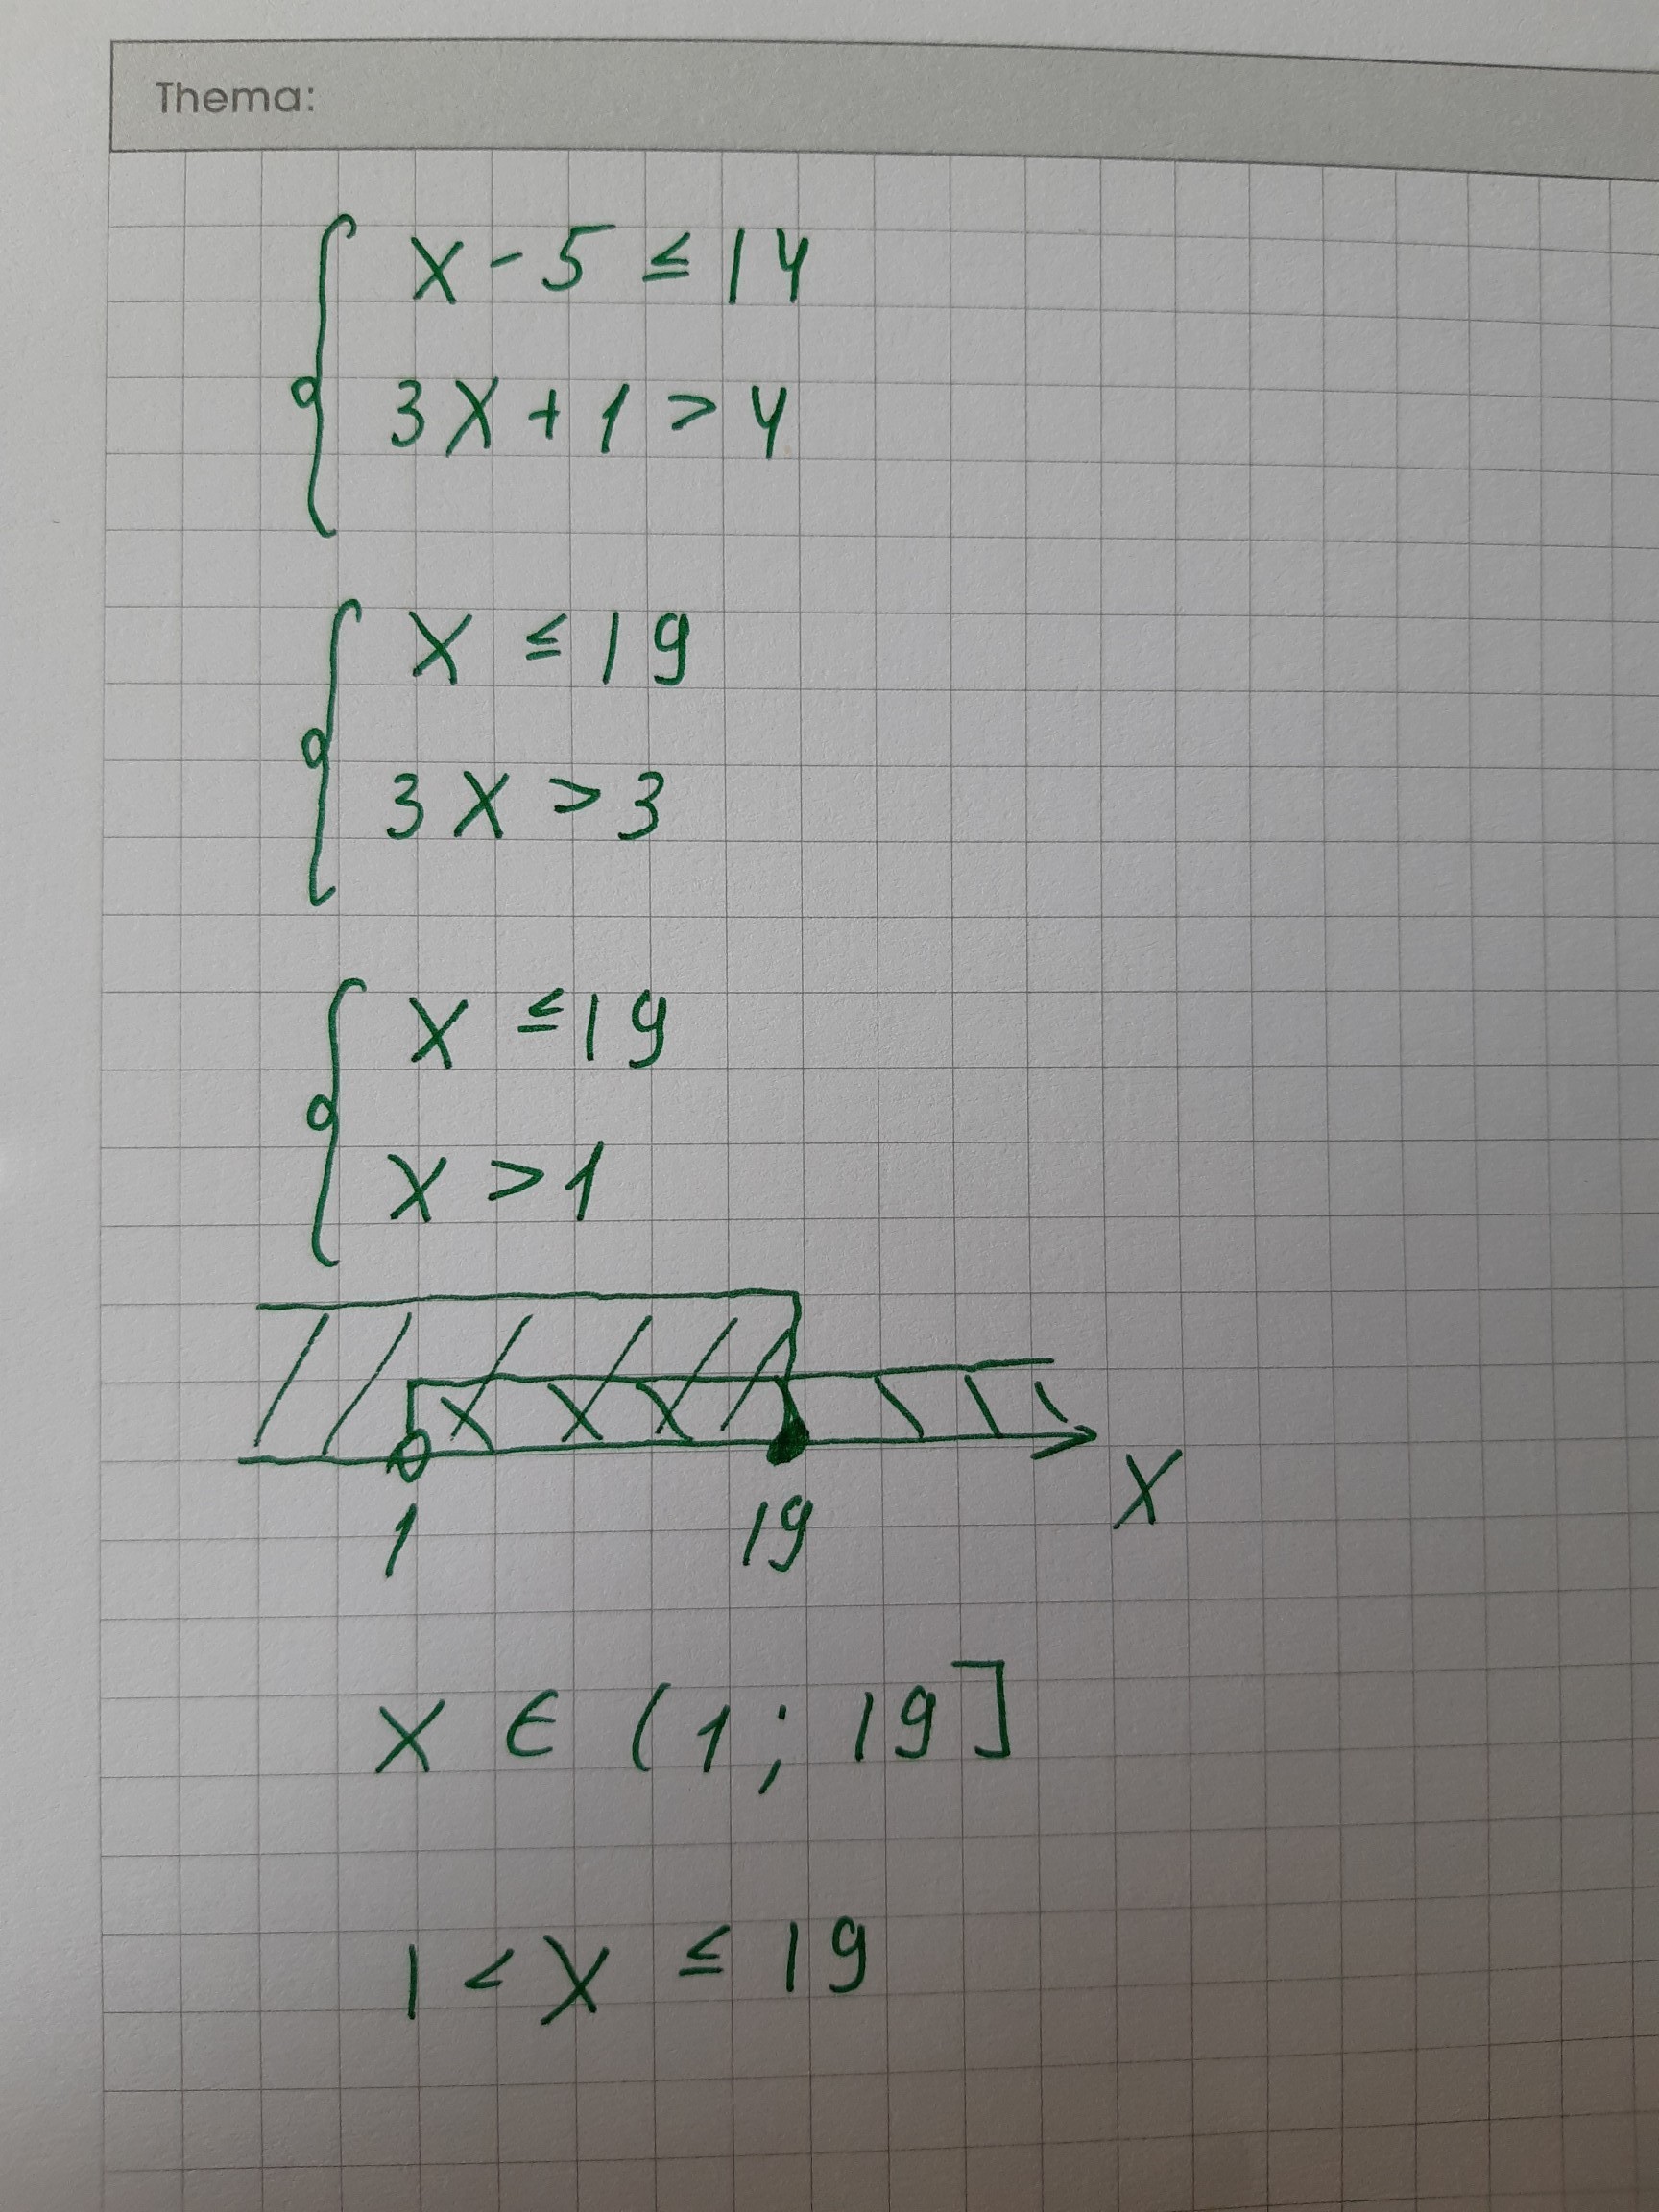 Thema:
x - 5 ≤ 14
3x + 1 > 4
x ≤ 19
3x > 3
x ≤ 19
x > 1
1 19 x
x ∈ (1; 19]
1 < x ≤ 19